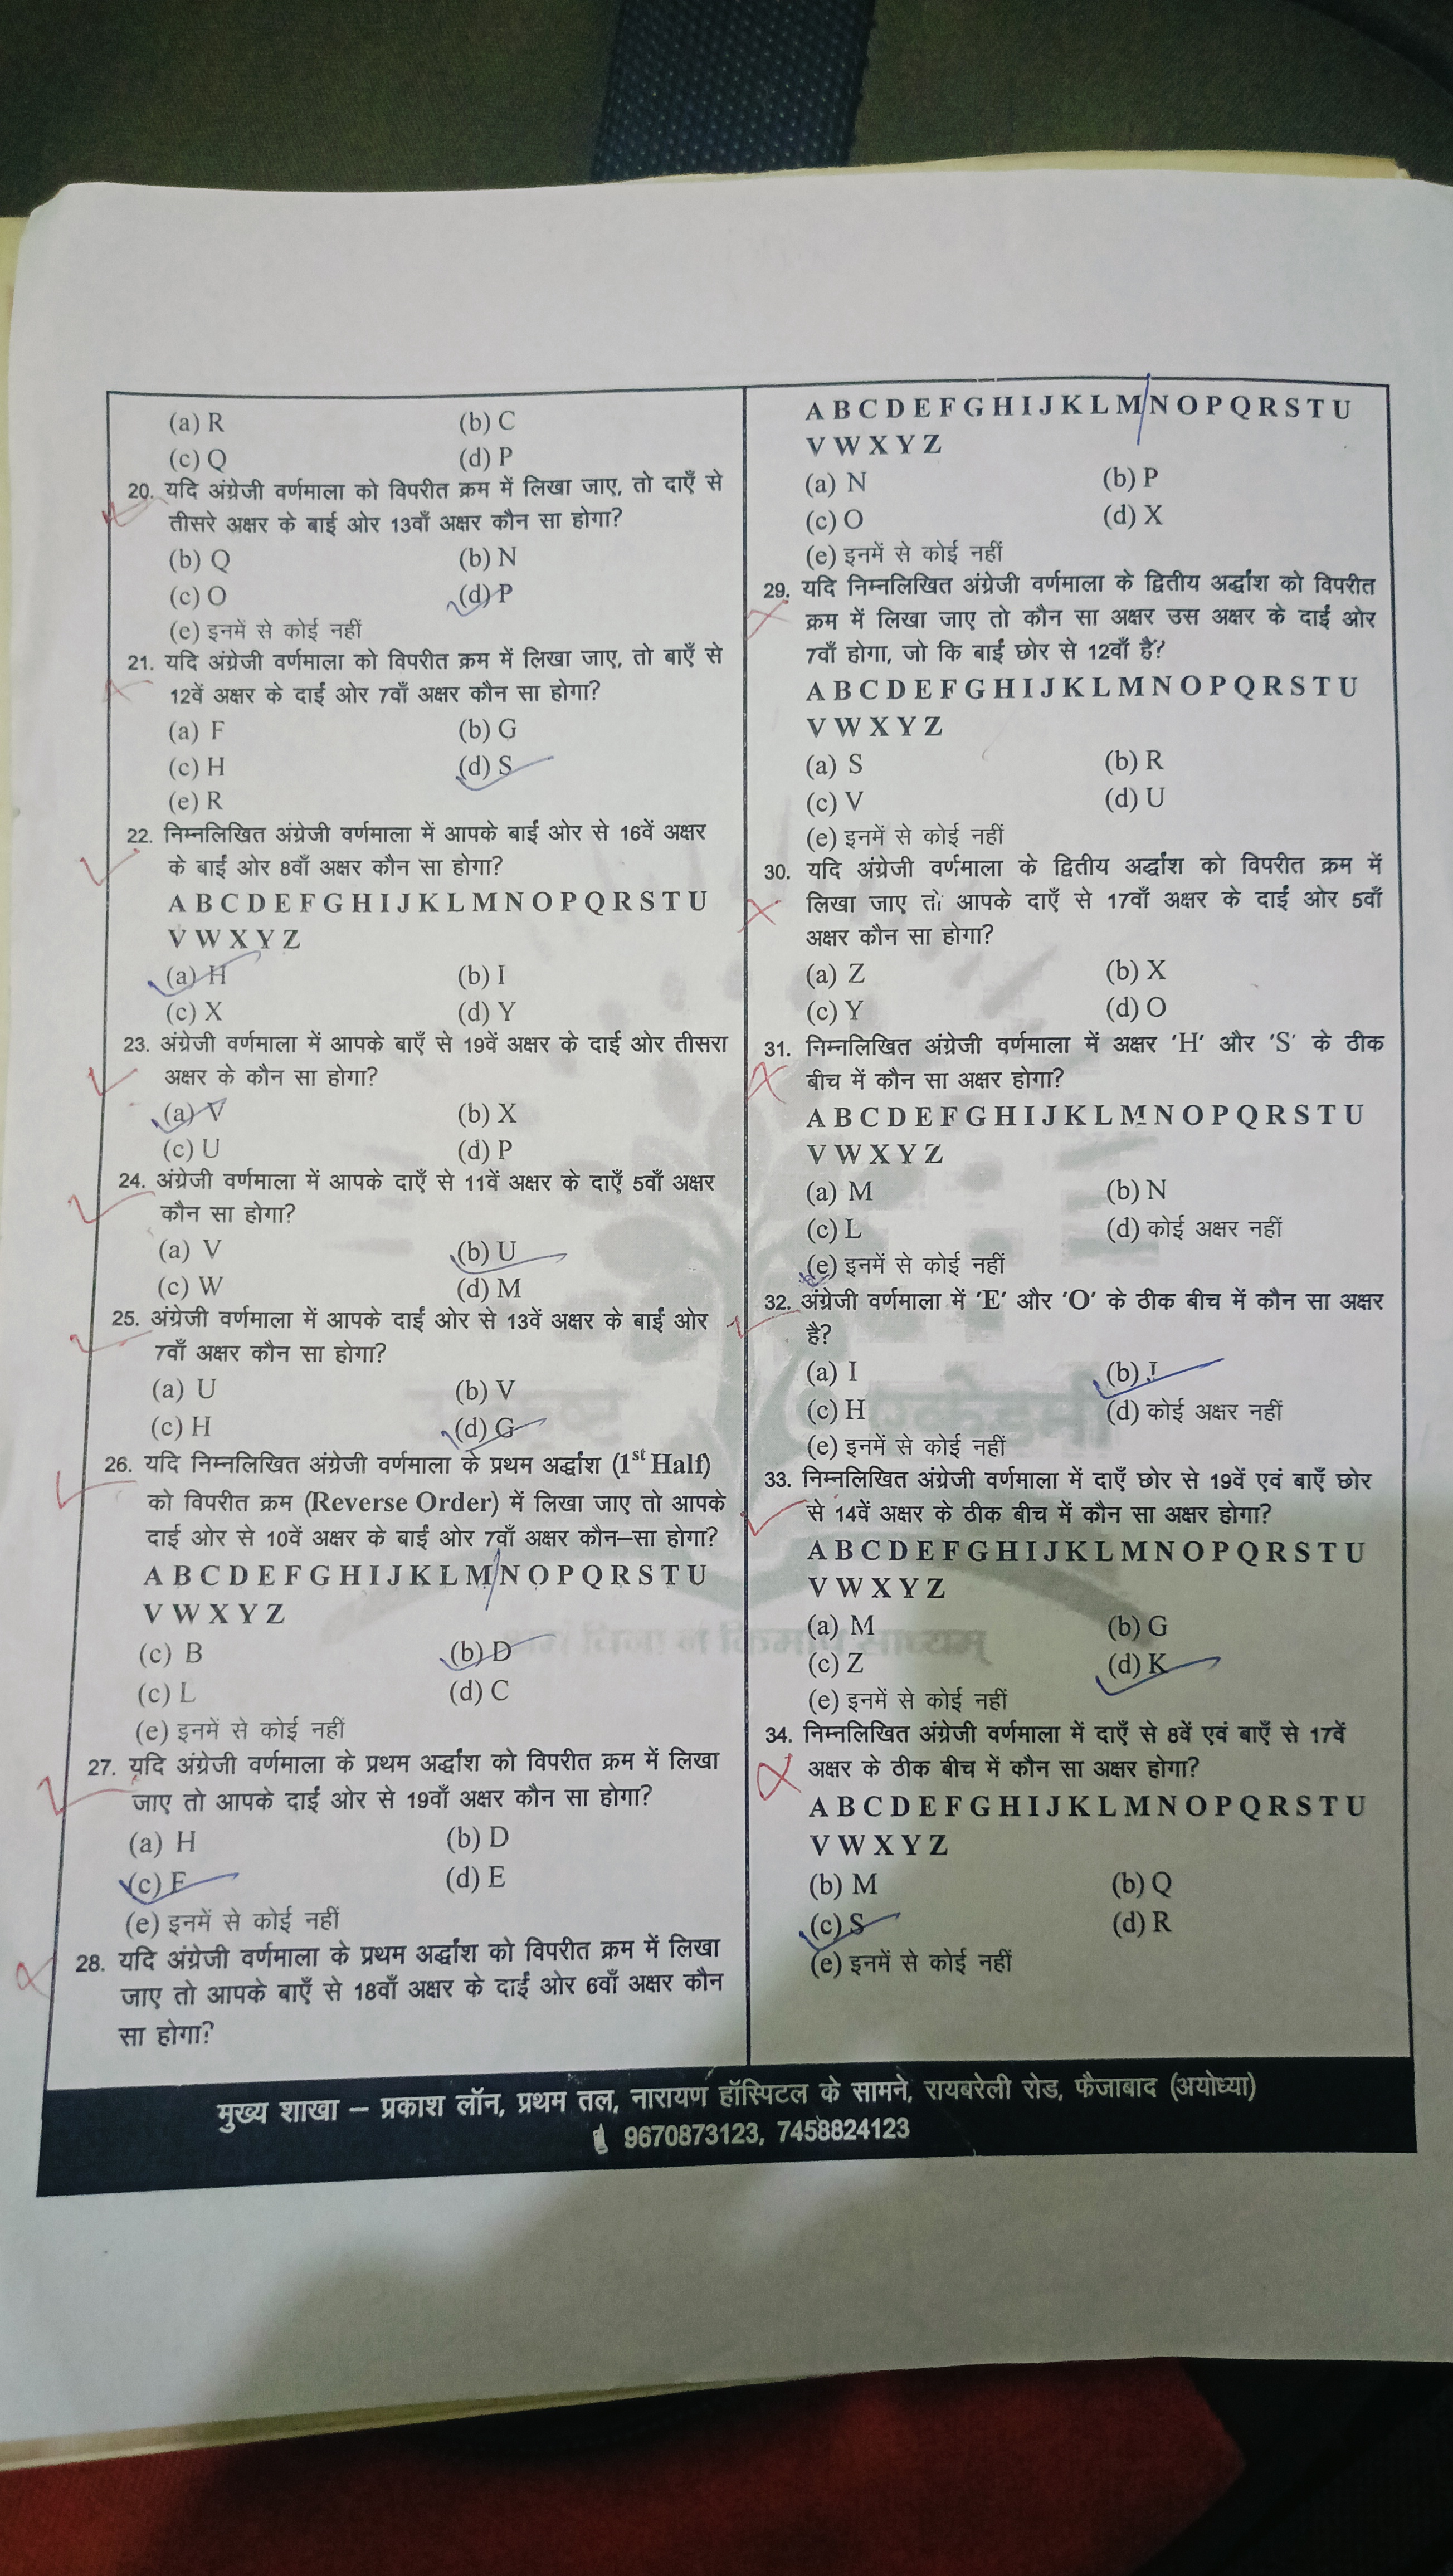 (a) R (b) C
(c) Q (d) P
20. यदि अंग्रेजी वर्णमाला को विपरीत क्रम में लिखा जाए, तो दाएँ से
तीसरे अक्षर के बाई ओर 13वाँ अक्षर कौन सा होगा?
(b) Q (b) N
(c) O (d) P
(e) इनमें से कोई नहीं
21. यदि अंग्रेजी वर्णमाला को विपरीत क्रम में लिखा जाए, तो बाएँ से
12वें अक्षर के दाईं ओर 7वाँ अक्षर कौन सा होगा?
(a) F (b) G
(c) H (d) S
(e) R
22. निम्नलिखित अंग्रेजी वर्णमाला में आपके बाईं ओर से 16वें अक्षर
के बाईं ओर 8वाँ अक्षर कौन सा होगा?
A B C D E F G H I J K L M N O P Q R S T U
V W X Y Z
(a) H (b) I
(c) X (d) Y
23. अंग्रेजी वर्णमाला में आपके बाएँ से 19वें अक्षर के दाई ओर तीसरा
अक्षर के कौन सा होगा?
(a) V (b) X
(c) U (d) P
24. अंग्रेजी वर्णमाला में आपके दाएँ से 11वें अक्षर के दाएँ 5वाँ अक्षर
कौन सा होगा?
(a) V (b) U
(c) W (d) M
25. अंग्रेजी वर्णमाला में आपके दाईं ओर से 13वें अक्षर के बाईं ओर
7वाँ अक्षर कौन सा होगा?
(a) U (b) V
(c) H (d) G
26. यदि निम्नलिखित अंग्रेजी वर्णमाला के प्रथम अर्द्धांश (1st Half)
को विपरीत क्रम (Reverse Order) में लिखा जाए तो आपके
दाई ओर से 10वें अक्षर के बाईं ओर 7वाँ अक्षर कौन–सा होगा?
A B C D E F G H I J K L M N O P Q R S T U
V W X Y Z
(c) B (b) D
(c) L (d) C
(e) इनमें से कोई नहीं
27. यदि अंग्रेजी वर्णमाला के प्रथम अर्द्धांश को विपरीत क्रम में लिखा
जाए तो आपके दाईं ओर से 19वाँ अक्षर कौन सा होगा?
(a) H (b) D
(c) F (d) E
(e) इनमें से कोई नहीं
28. यदि अंग्रेजी वर्णमाला के प्रथम अर्द्धांश को विपरीत क्रम में लिखा
जाए तो आपके बाएँ से 18वाँ अक्षर के दाईं ओर 6वाँ अक्षर कौन
सा होगा?
A B C D E F G H I J K L M N O P Q R S T U
V W X Y Z
(a) N (b) P
(c) O (d) X
(e) इनमें से कोई नहीं
29. यदि निम्नलिखित अंग्रेजी वर्णमाला के द्वितीय अर्द्धांश को विपरीत
क्रम में लिखा जाए तो कौन सा अक्षर उस अक्षर के दाईं ओर
7वाँ होगा, जो कि बाईं छोर से 12वाँ है?
A B C D E F G H I J K L M N O P Q R S T U
V W X Y Z
(a) S (b) R
(c) V (d) U
(e) इनमें से कोई नहीं
30. यदि अंग्रेजी वर्णमाला के द्वितीय अर्द्धांश को विपरीत क्रम में
लिखा जाए तो आपके दाएँ से 17वाँ अक्षर के दाईं ओर 5वाँ
अक्षर कौन सा होगा?
(a) Z (b) X
(c) Y (d) O
31. निम्नलिखित अंग्रेजी वर्णमाला में अक्षर 'H' और 'S' के ठीक
बीच में कौन सा अक्षर होगा?
A B C D E F G H I J K L M N O P Q R S T U
V W X Y Z
(a) M (b) N
(c) L (d) कोई अक्षर नहीं
(e) इनमें से कोई नहीं
32. अंग्रेजी वर्णमाला में 'E' और 'O' के ठीक बीच में कौन सा अक्षर
है?
(a) I (b) J
(c) H (d) कोई अक्षर नहीं
(e) इनमें से कोई नहीं
33. निम्नलिखित अंग्रेजी वर्णमाला में दाएँ छोर से 19वें एवं बाएँ छोर
से 14वें अक्षर के ठीक बीच में कौन सा अक्षर होगा?
A B C D E F G H I J K L M N O P Q R S T U
V W X Y Z
(a) M (b) G
(c) Z (d) K
(e) इनमें से कोई नहीं
34. निम्नलिखित अंग्रेजी वर्णमाला में दाएँ से 8वें एवं बाएँ से 17वें
अक्षर के ठीक बीच में कौन सा अक्षर होगा?
A B C D E F G H I J K L M N O P Q R S T U
V W X Y Z
(b) M (b) Q
(c) S (d) R
(e) इनमें से कोई नहीं
मुख्य शाखा – प्रकाश लॉन, प्रथम तल, नारायण हॉस्पिटल के सामने, रायबरेली रोड, फैजाबाद (अयोध्या)
9670873123, 7458824123